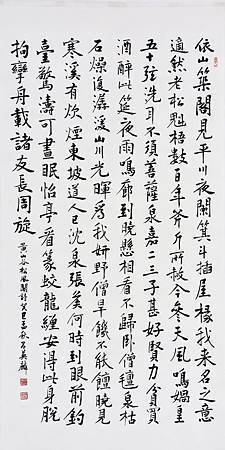 依山築閣見平川夜闌箕斗插屋椽我來名之意
適然老松魁梧數百年斧斤所赦今參天風鳴媧皇
五十弦洗耳不須菩薩泉嘉二三子甚好賢力貧買
酒醉此筵夜雨鳴廊到曉懸相看不歸卧僧氈泉枯
石燥復潺湲山川光暉爲我妍野僧旱饑不能饘曉見
寒溪有炊煙東坡道人已沈泉張侯何時到眼前釣
臺驚濤可晝眠怡亭看篆蛟龍纏安得此身脫
拘攣舟載諸友長周旋
黃山谷松風閣詩癸巳孟秋